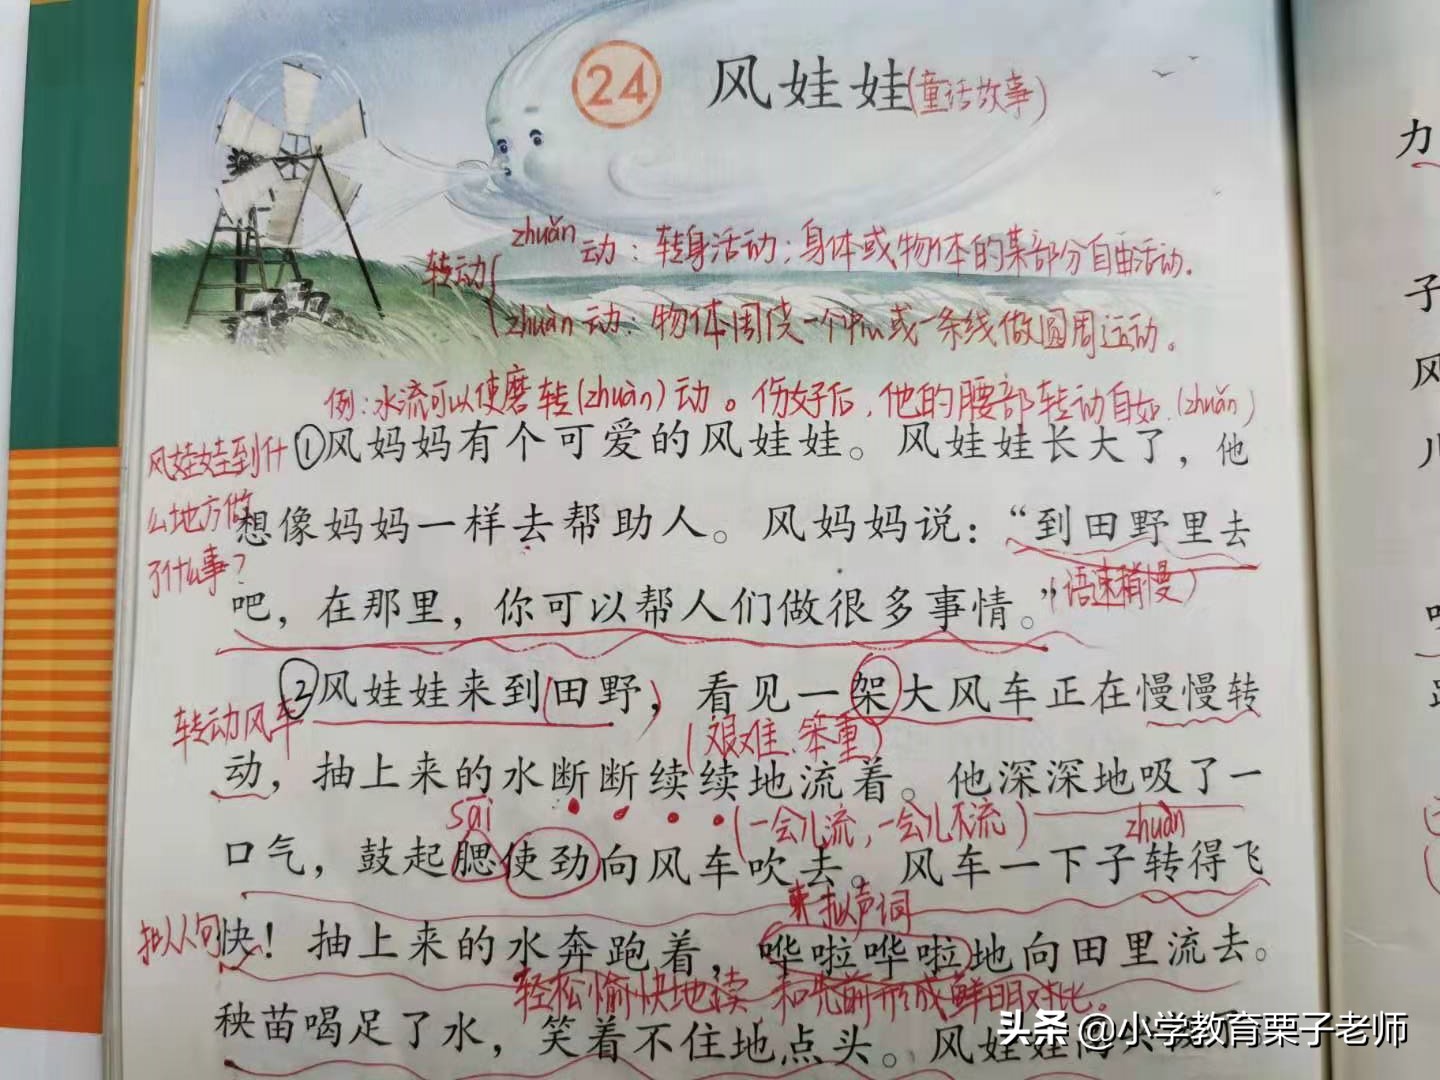 24 风娃娃(童话故事)
转动{zhuǎn动：转身活动；身体或物体的某部分自由活动.
zhuàn动：物体围绕一个中心或一条线做圆周运动。
例：水流可以使磨转(zhuàn)动。伤好后，他的腰部转动自如.(zhuǎn)
风娃娃到什
么地方做
了什么事？
①风妈妈有个可爱的风娃娃。风娃娃长大了，他
想像妈妈一样去帮助人。风妈妈说：“到田野里去
吧，在那里，你可以帮人们做很多事情。”(语速稍慢)
②风娃娃来到田野，看见一架大风车正在慢慢转
转动风车
(艰难、笨重)
动，抽上来的水断断续续地流着。他深深地吸了一
sāi
(一会儿流，一会儿不流)
zhuàn
口气，鼓起腮使劲向风车吹去。风车一下子转得飞
拟声词
拟人句
快！抽上来的水奔跑着，哗啦哗啦地向田里流去。
轻松愉快地读，和先前形成鲜明对比。
秧苗喝足了水，笑着不住地点头。风娃娃
头条 @小学教育栗子老师
力
子
风